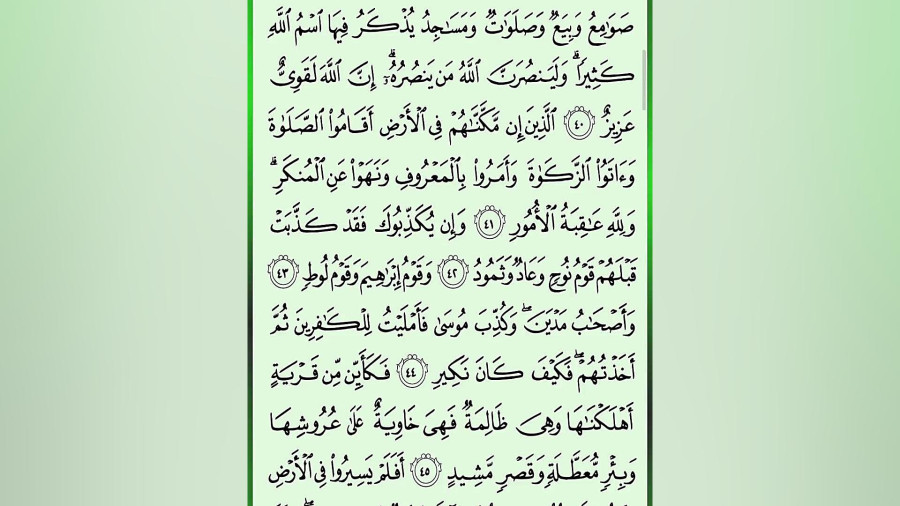 صَوَٰمِعُ وَبِيَعٌ وَصَلَوَٰتٌ وَمَسَٰجِدُ يُذْكَرُ فِيهَا ٱسْمُ ٱللَّهِ
كَثِيرًا ۗ وَلَيَنصُرَنَّ ٱللَّهُ مَن يَنصُرُهُۥٓ ۗ إِنَّ ٱللَّهَ لَقَوِىٌّ
عَزِيزٌ ٤٠ ٱلَّذِينَ إِن مَّكَّنَّٰهُمْ فِى ٱلْأَرْضِ أَقَامُوا۟ ٱلصَّلَوٰةَ
وَءَاتَوُا۟ ٱلزَّكَوٰةَ وَأَمَرُوا۟ بِٱلْمَعْرُوفِ وَنَهَوْا۟ عَنِ ٱلْمُنكَرِ ۗ
وَلِلَّهِ عَٰقِبَةُ ٱلْأُمُورِ ٤١ وَإِن يُكَذِّبُوكَ فَقَدْ كَذَّبَتْ
قَبْلَهُمْ قَوْمُ نُوحٍ وَعَادٌ وَثَمُودُ ٤٢ وَقَوْمُ إِبْرَٰهِيمَ وَقَوْمُ لُوطٍ ٤٣
وَأَصْحَٰبُ مَدْيَنَ ۖ وَكُذِّبَ مُوسَىٰ فَأَمْلَيْتُ لِلْكَٰفِرِينَ ثُمَّ
أَخَذْتُهُمْ ۖ فَكَيْفَ كَانَ نَكِيرِ ٤٤ فَكَأَيِّن مِّن قَرْيَةٍ
أَهْلَكْنَٰهَا وَهِىَ ظَالِمَةٌ فَهِىَ خَاوِيَةٌ عَلَىٰ عُرُوشِهَا
وَبِئْرٍ مُّعَطَّلَةٍ وَقَصْرٍ مَّشِيدٍ ٤٥ أَفَلَمْ يَسِيرُوا۟ فِى ٱلْأَرْضِ